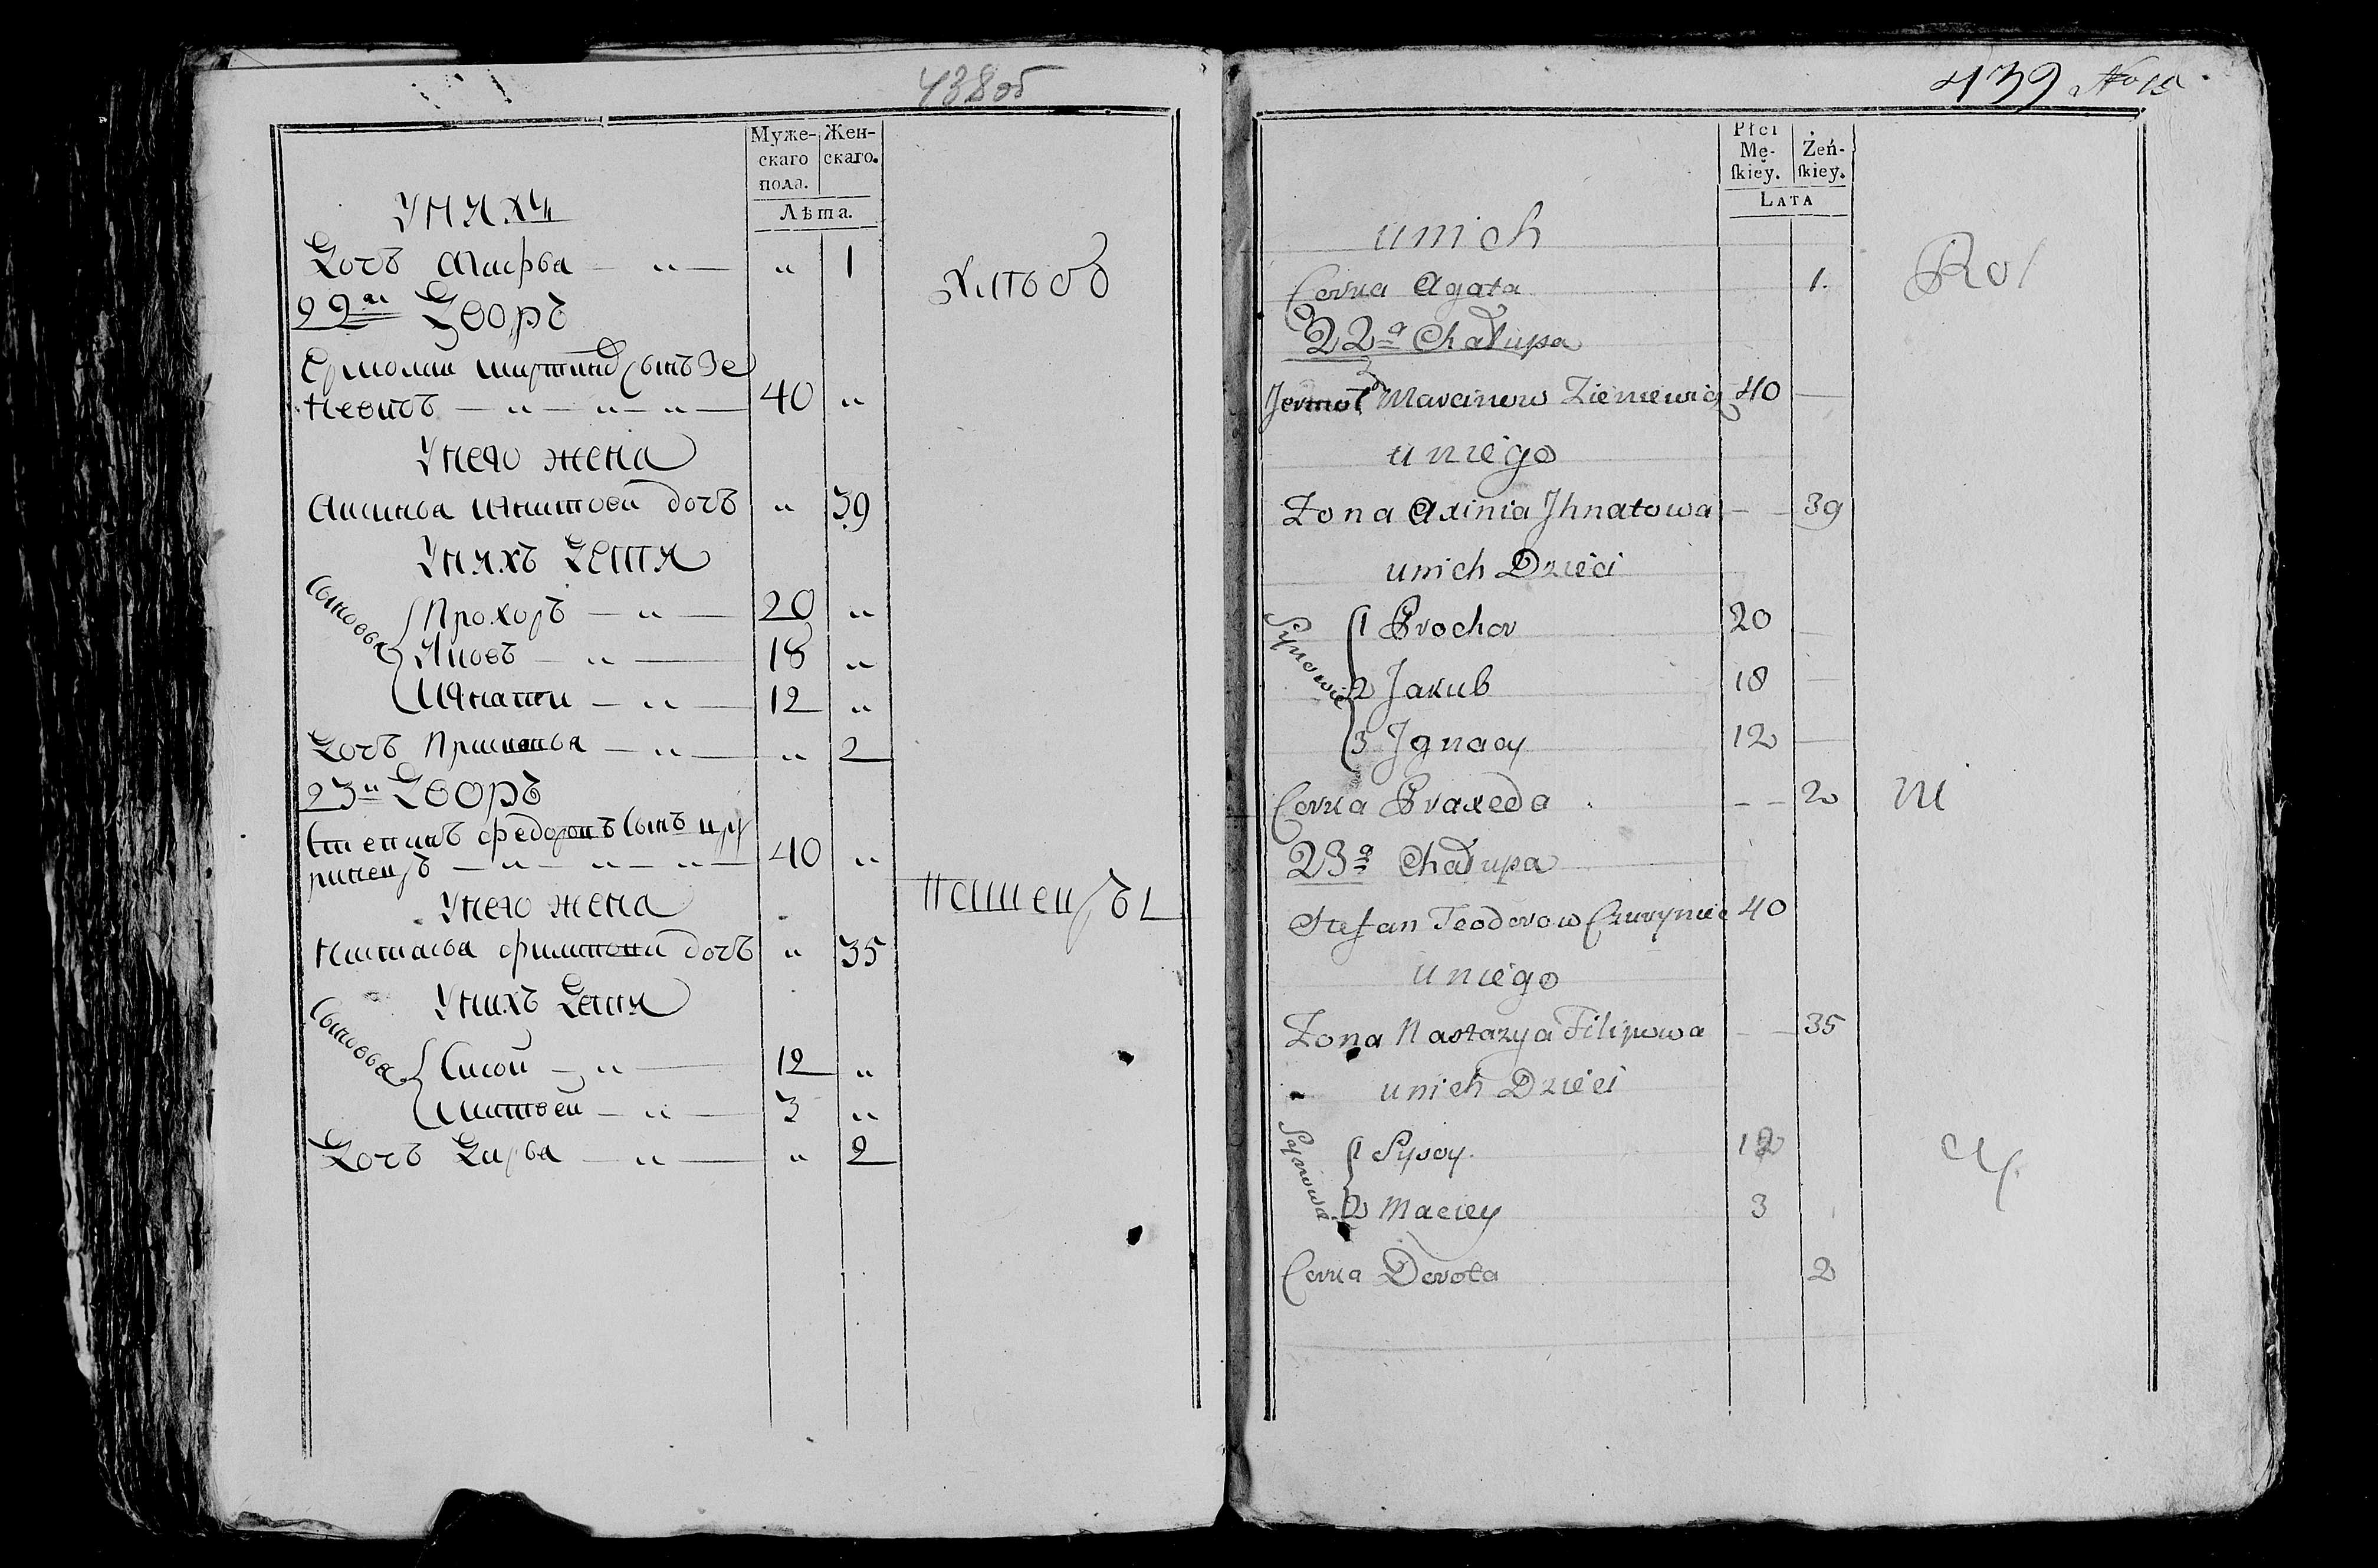 438об
Муже- Жен-
скаго скаго.
пола.
Лѣта.
У нихъ
Дочь Магрѣа — " — " 1
22я Дворъ
Хлѣбо
Ермолай Мартиновъ сынъ Зе
невичъ — " — " — " — 40 "
У него жена
Аксинья Игнатова дочь " 39
У нихъ дети
Сыновья
Прохоръ — " — 20 "
Яковъ — " — 18 "
Игнатей — " — 12 "
Дочь — " — " 2
23й Дворъ
Степанъ Федоровъ сынъ Цу
ринецъ — " — " — " — 40 "
У него жена
пашецъ 1
Настасья Филипова дочь " 35
У нихъ дети
Сыновья
Сисой — " — 12 "
Матвей — " — 3 "
Дочь Дарья — " — " 2
439 No 12
Płci
Mę- Żeń-
ſkiey. ſkiey.
LATA
u nich
Corka Agata 1. Rol
22a Chałupa
Jermoł Marcinow Zieniewicz 40 —
u niego
Żona Axinia Jhnatowa — — 39
u nich Dzieci
Synowie
1 Prochor 20 —
2 Jakub 18 —
3 Jgnacy 12 —
Corka Praxeda . — — 2 ni
23a Chałupa
Stefan Teodorow Czuryniec 40
u niego
Żona Nastazya Filipowa — — 35
u nich Dzieci
Synowie
1 Sysoy. 12 cy.
2 Maciey 3
Corka Dorota 2